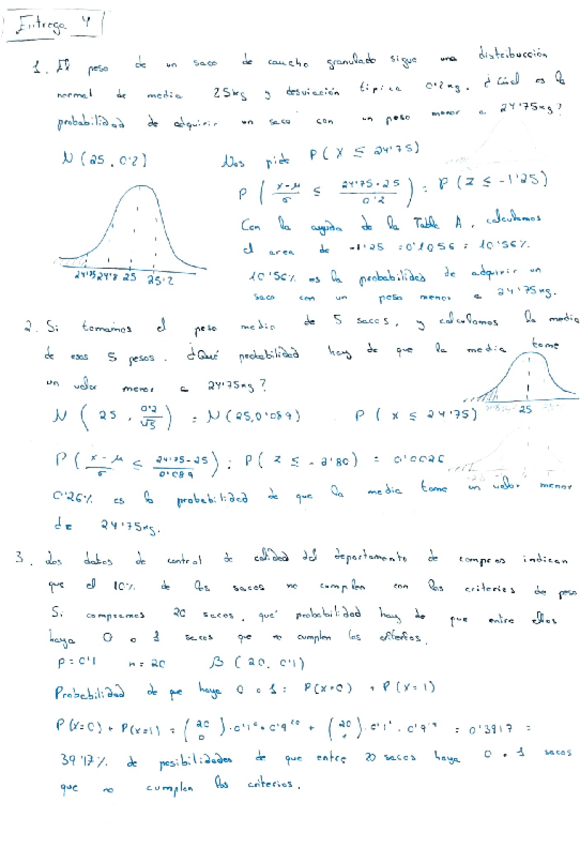 Entrega 4
1. El peso de un saco de caucho granulado sigue una distribucción
normal de media 25kg y desviación típica 0'2kg. ¿Cúal es la
probabilidad de adquirir un saco con un peso menor a 24'75kg?
N(25, 0'2) Nos pide P(X ≤ 24'75)
P((x-μ)/σ ≤ (24'75-25)/0'2) = P(Z ≤ -1'25)
Con la ayuda de la Tabla A, calculamos
el area de -1'25 = 0'1056 = 10'56%.
24'75 24'8 25 25'2
10'56% es la probabilidad de adquirir un
saco con un peso menor a 24'75kg.
2. Si tomamos el peso medio de 5 sacos, y calculamos la media
de esos 5 pesos. ¿Qué probabilidad hay de que la media tome
un valor menor a 24'75kg?
25
N(25, 0'2/√5) = N(25,0'089) P(x ≤ 24'75)
P((x-μ)/σ ≤ (24'75-25)/0'089) = P(z ≤ -2'80) = 0'0026
0'26% es la probabilidad de que la media tome un valor menor
de 24'75kg.
3. Los datos de control de calidad del departamento de compras indican
que el 10% de los sacos no cumplen con los criterios de peso
Si compramos 20 sacos, qué probabilidad hay de que entre ellos
haya 0 o 1 sacos que no cumplen los criterios.
p=0'1 n=20 B(20, 0'1)
Probabilidad de que haya 0 o 1: P(X=0) + P(X=1)
P(X=0) + P(X=1) = (20 0)·0'1⁰·0'9²⁰ + (20 1)·0'1¹·0'9¹⁹ = 0'3917 =
39'17% de posibilidades de que entre 20 sacos haya 0 o 1 sacos
que no cumplen los criterios.